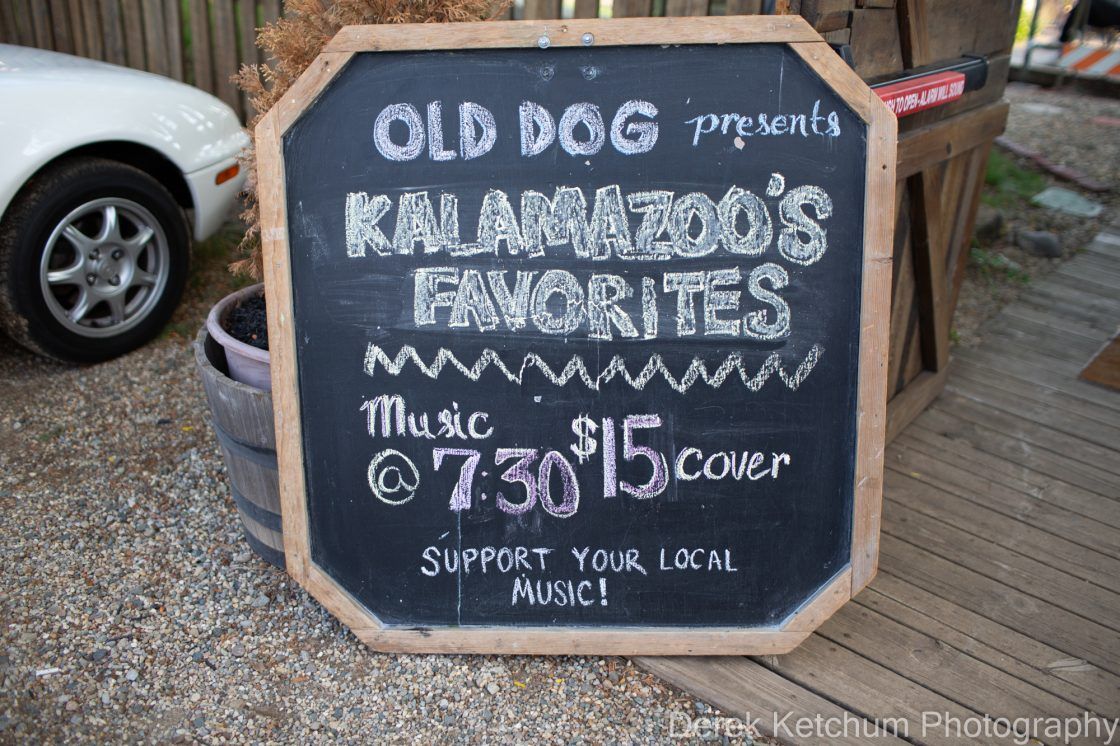 OLD DOG presents
KALAMAZOO'S
FAVORITES
Music
@ 7:30 $15 cover
SUPPORT YOUR LOCAL
MUSIC!
TO OPEN-ALARM WILL SOUND
Derek Ketchum Photography